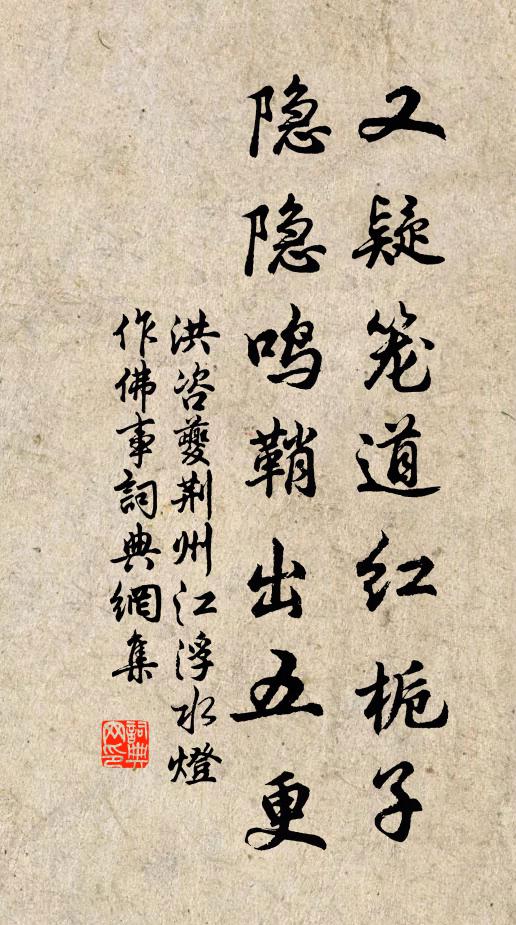 又疑笼道红栀子
隐隐鸣鞘出五更
洪咨夔荆州江浮水燈
作佛事詞典網集
詞典网印